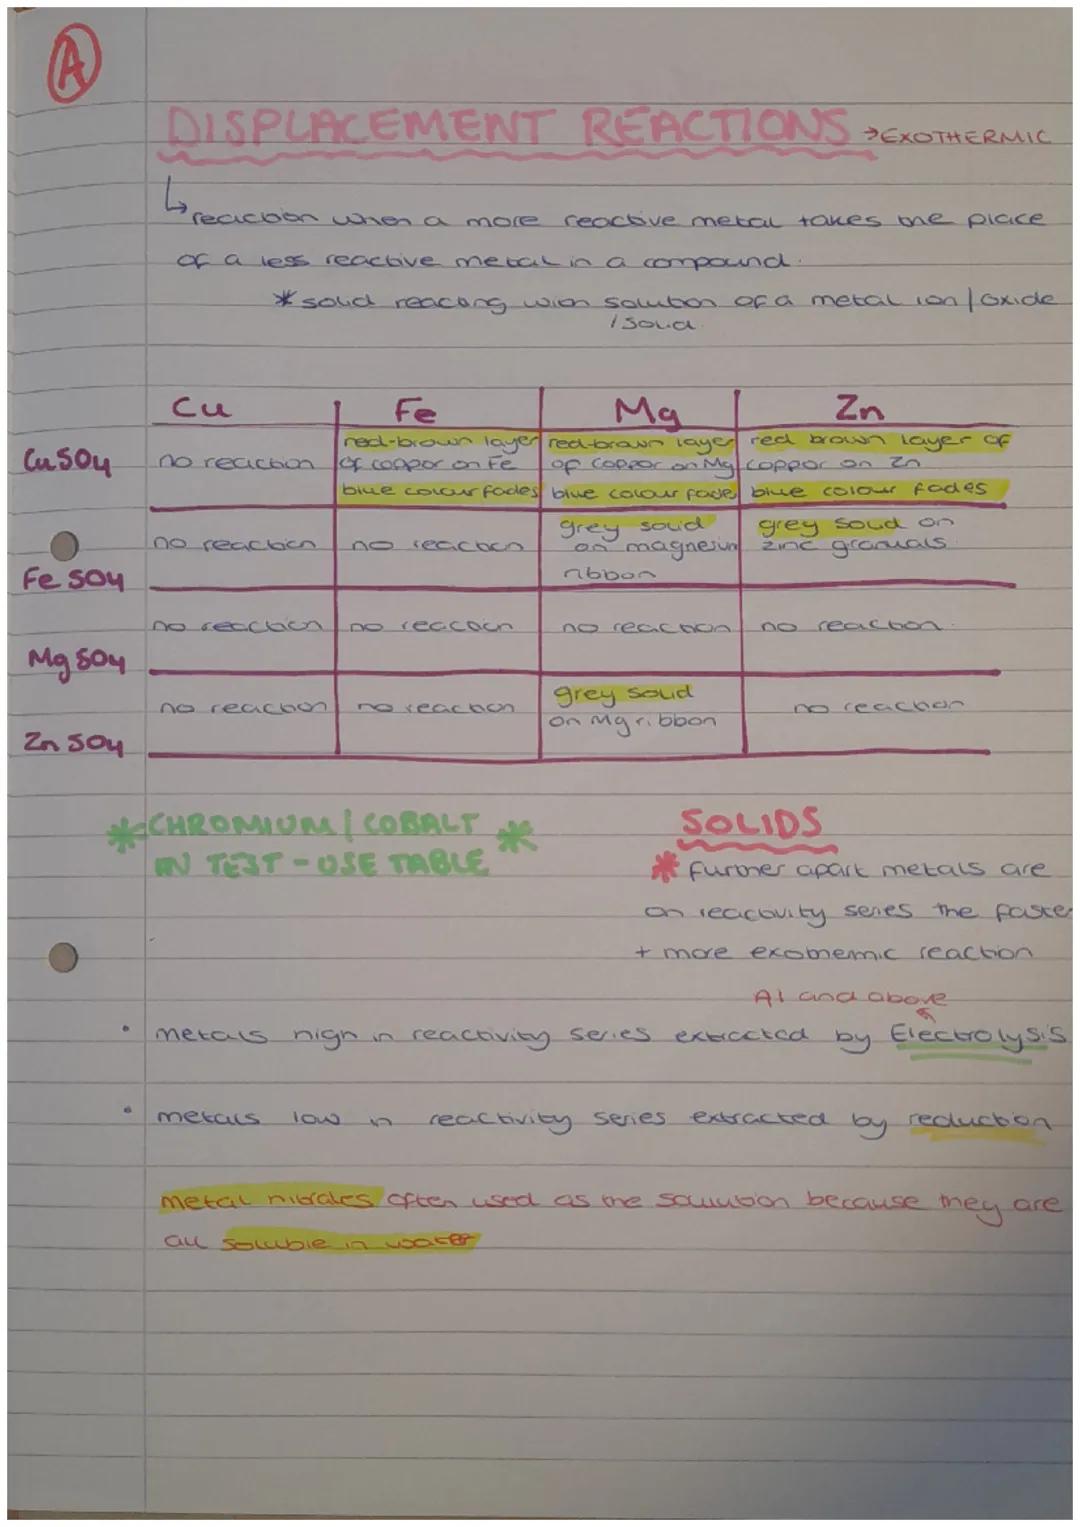 A
DISPLACEMENT REACTIONS → EXOTHERMIC
↳ reaction when a more reactive metal takes the place
of a less reactive metal in a compound.
* solid reacting with solution of a metal ion / oxide
/ solid.
Cu Fe Mg Zn
CuSO4 no reaction red-brown layer of coppor on Fe blue colour fades red-brown layer of coppor on Mg blue colour fade red brown layer of coppor on Zn blue colour fades
FeSO4 no reaction no reaction grey solid on magnesium ribbon grey solid on zinc granuals
MgSO4 no reaction no reaction no reaction no reaction.
ZnSO4 no reaction no reaction grey solid on Mg ribbon no reaction
* CHROMIUM / COBALT *
IN TEST - USE TABLE
SOLIDS
* further apart metals are
on reactivity series the faster
+ more exothermic reaction
Al and above
• metals high in reactivity series extracted by Electrolysis
• metals low in reactivity series extracted by reduction
metal nitrates often used as the soluution because they are
all soluble in water